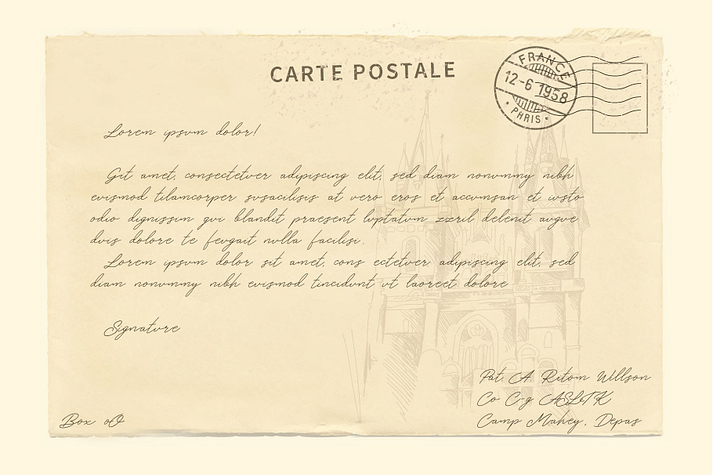 CARTE POSTALE
FRANCE
12-6 1958
PARIS
Lorem ipsum dolor!
Git amet, consectetuer adipiscing elit, sed diam nonummy nibh
euismod tilamcorper susacilisis at vero eros et accumsan et iusto
odio dignissim qui blandit praesent luptatum zzril delenit augue
duis dolore te feugait nulla facilisi.
Lorem ipsum dolor sit amet, cons ectetuer adipiscing elit, sed
diam nonummy nibh euismod tincidunt ut laoreet dolore
Signature
Pat. A. Ritom Willson
Co C-g
Camp Mahey, Depas
Box